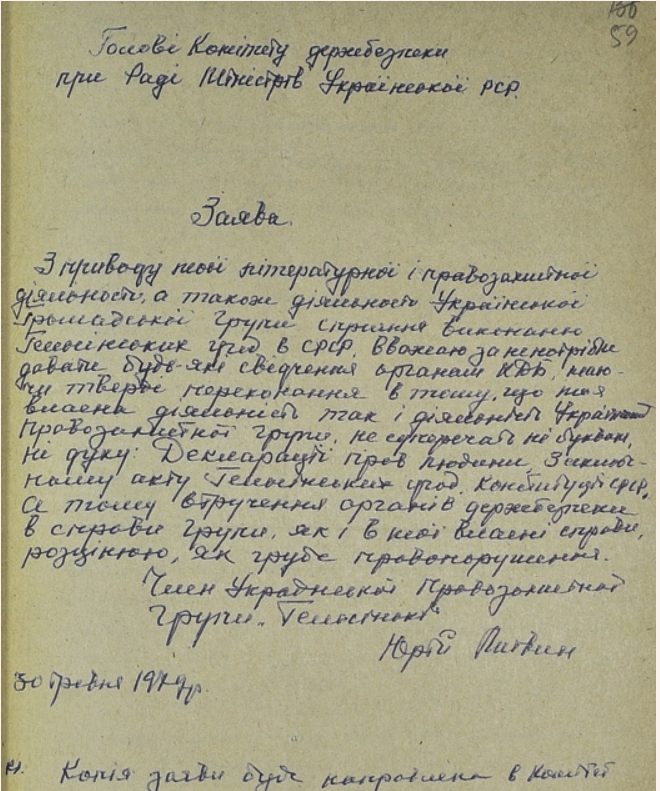 100
59
Голові Комітету держбезпеки
при Раді Міністрів Української РСР.
Заява.
З приводу моєї літературної і правозахистної
діяльності, а також діяльності Української
Громадської Групи сприяння виконанню
Гельсінських угод в СРСР, вважаю за непотрібне
давати будь-які свідчення органам КДБ, маю-
чи тверде переконання в тому, що моя
власна діяльність так і діяльність Української
Правозахистної групи, не суперечать ні букві,
ні духу: Декларації прав людини, Заключ-
ному акту Гельсінських угод, Конституції СРСР.
А тому втручення органів держбезпеки
в справи групи, як і в мої власні справи,
розцінюю, як грубе правопорушення.
Член Української Правозахистної
групи „Гельсінські"
Юрій Литвин
30 травня 1979р.
Копія заяви буде направлена в Комітет